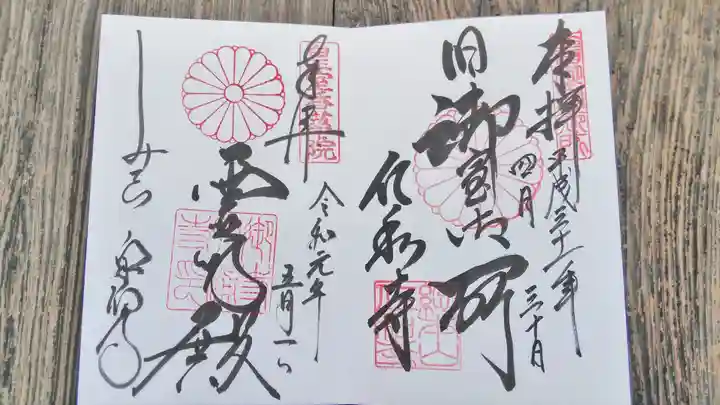 奉拝
平成三十一年
四月
三十日
旧御室御所
仁和寺
奉拝
皇室香華院
令和元年
五月一日
霊明殿
みてら泉涌寺